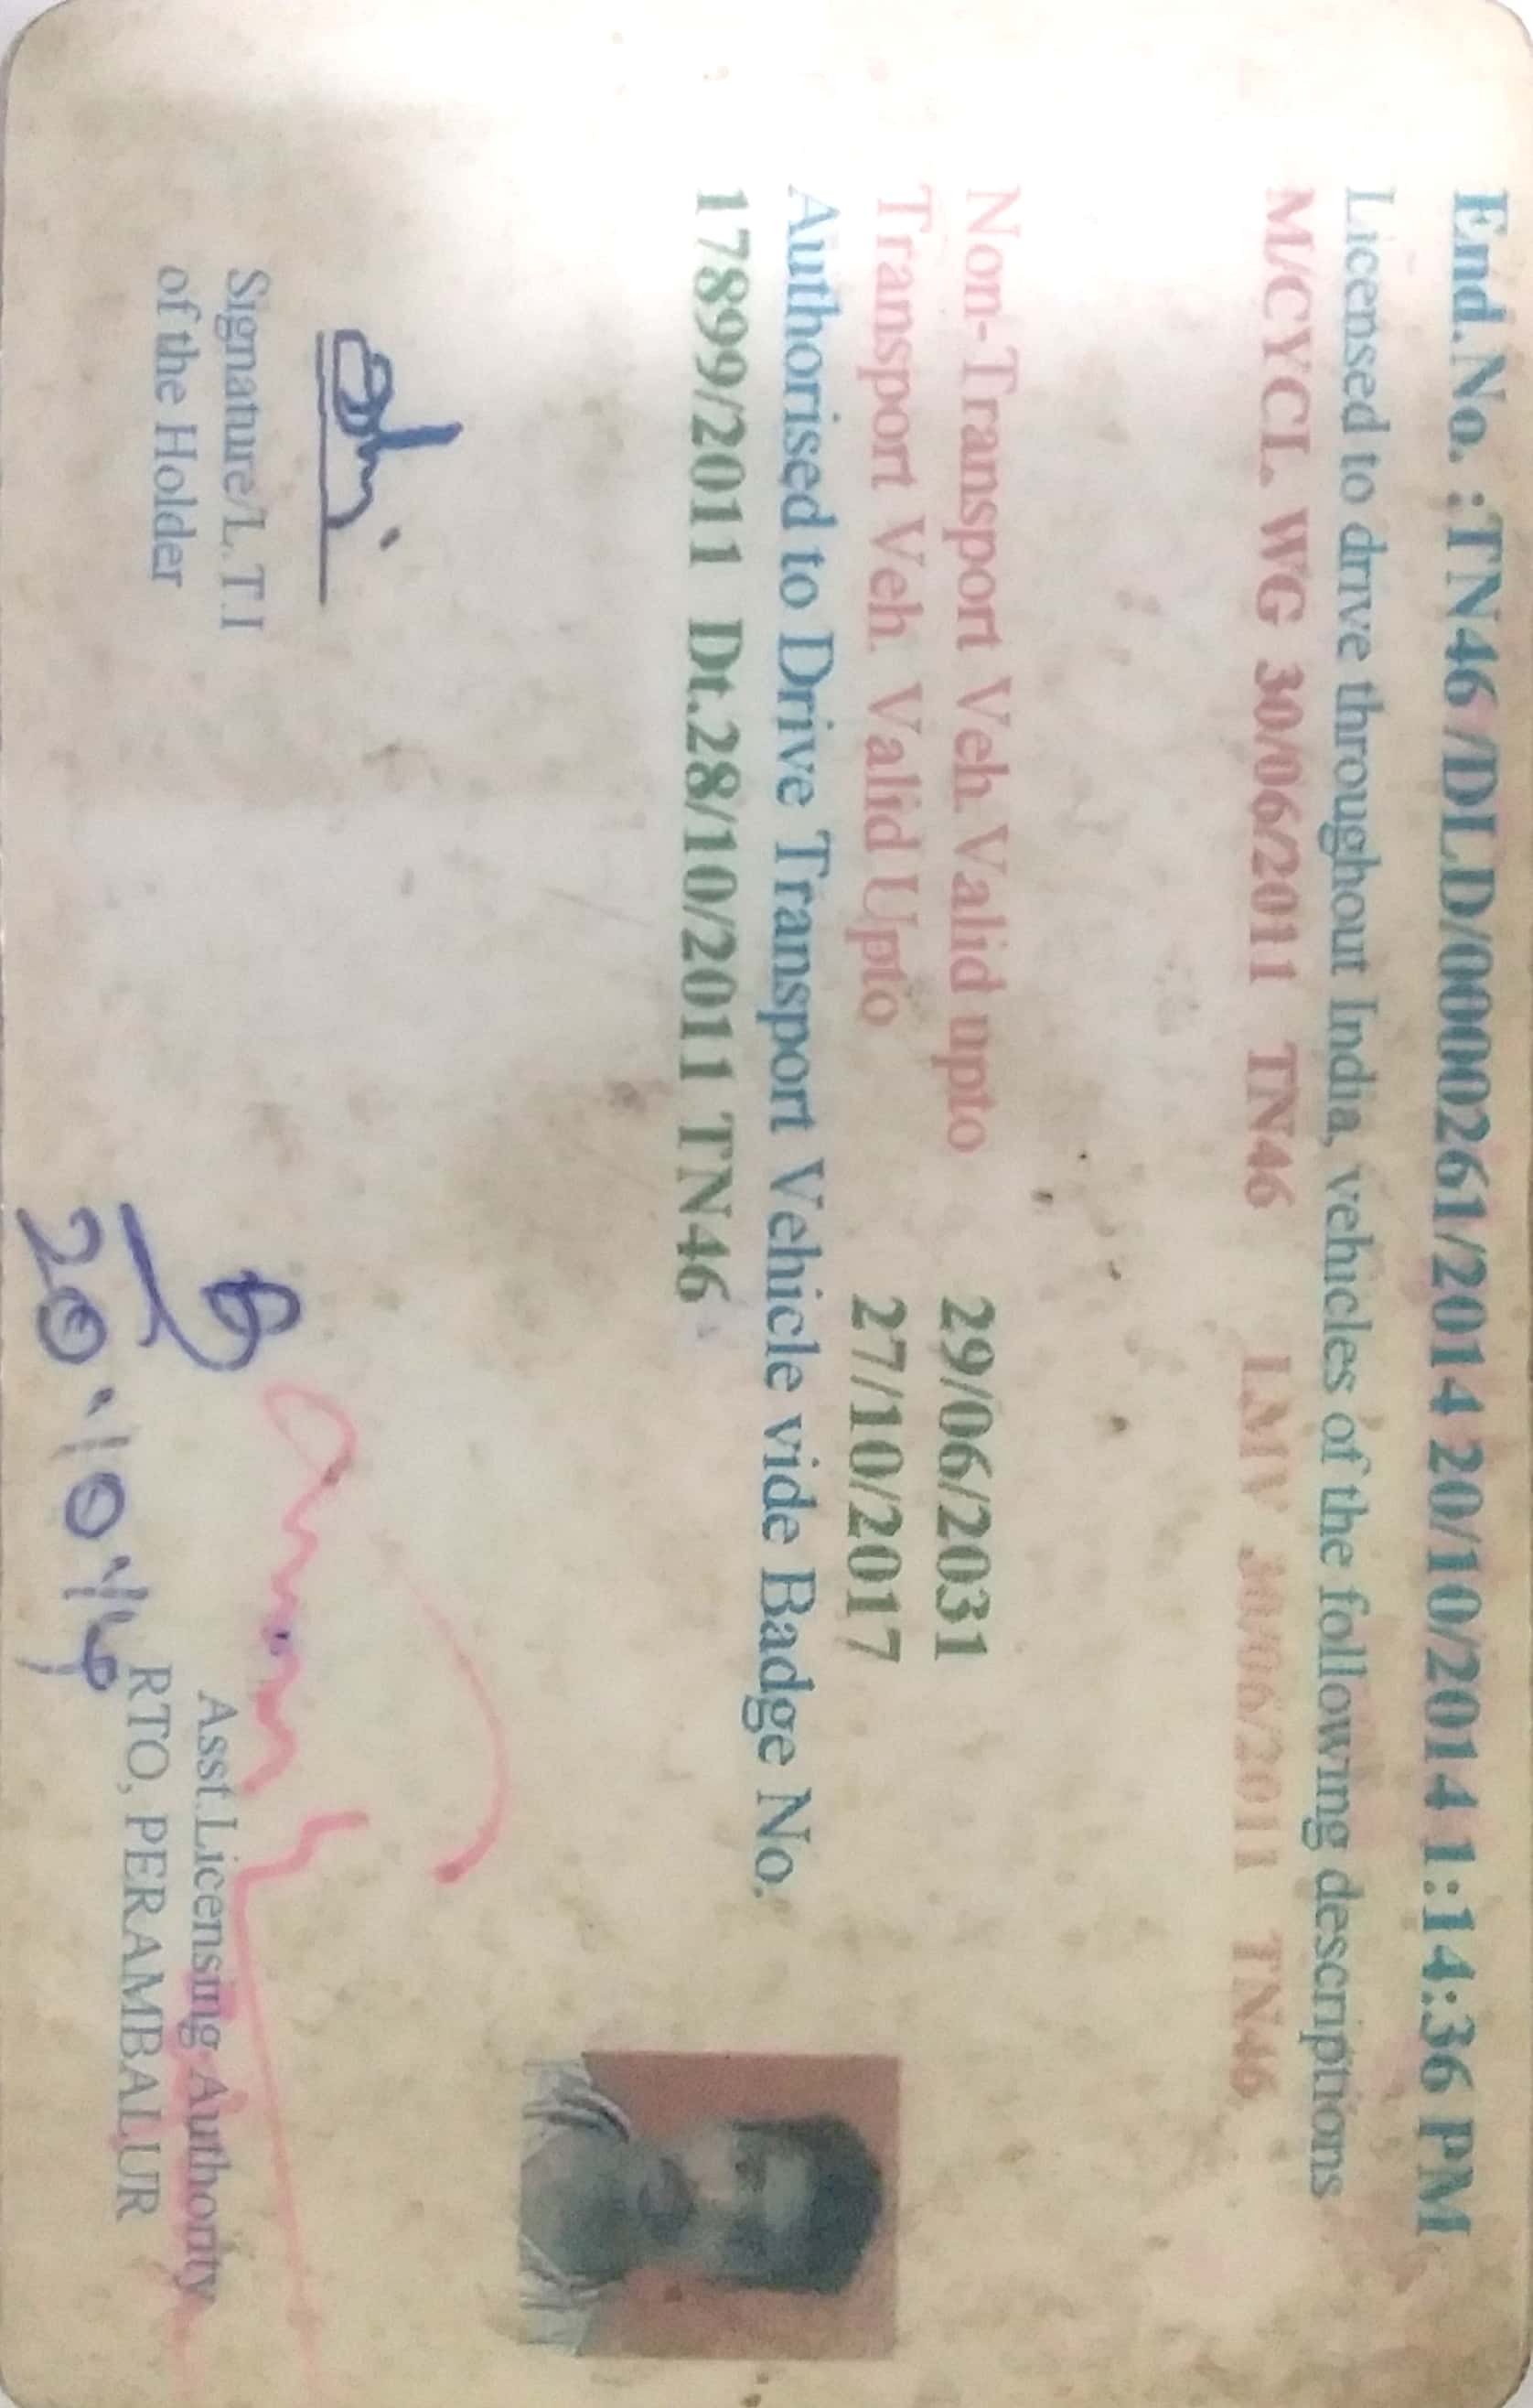 End.No. :TN46 /DLD/0000261/2014 20/10/2014 1:14:36 PM
Licensed to drive throughout India, vehicles of the following descriptions
M/CYCL. WG 30/06/2011 TN46 LMV 30/06/2011 TN46
Non-Transport Veh. Valid upto 29/06/2031
Transport Veh. Valid Upto 27/10/2017
Authorised to Drive Transport Vehicle vide Badge No.
17899/2011 Dt.28/10/2011 TN46
Signature/L.T.I
of the Holder
20.10.14
Asst.Licensing Authority
RTO, PERAMBALUR